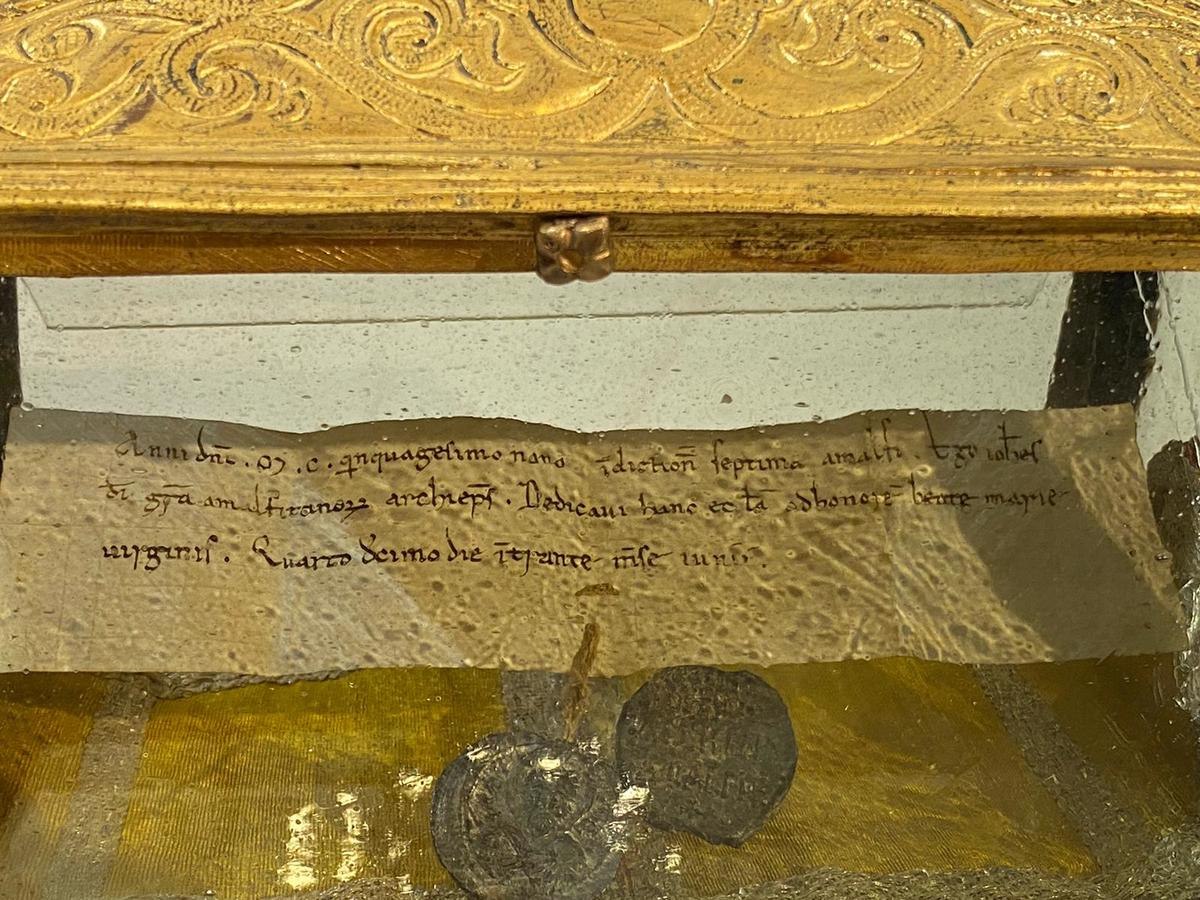 Anni dnī . M . C . qinquagesimo nono īdictioñ septima amalfi . Ego ioħes
dī gr̃a amalfitanoꝝ archiep̄s . Dedicaui hanc eccl̄a ad honorē beate marie
uirginis . Quarto decimo die ītrante m̄se iunii .